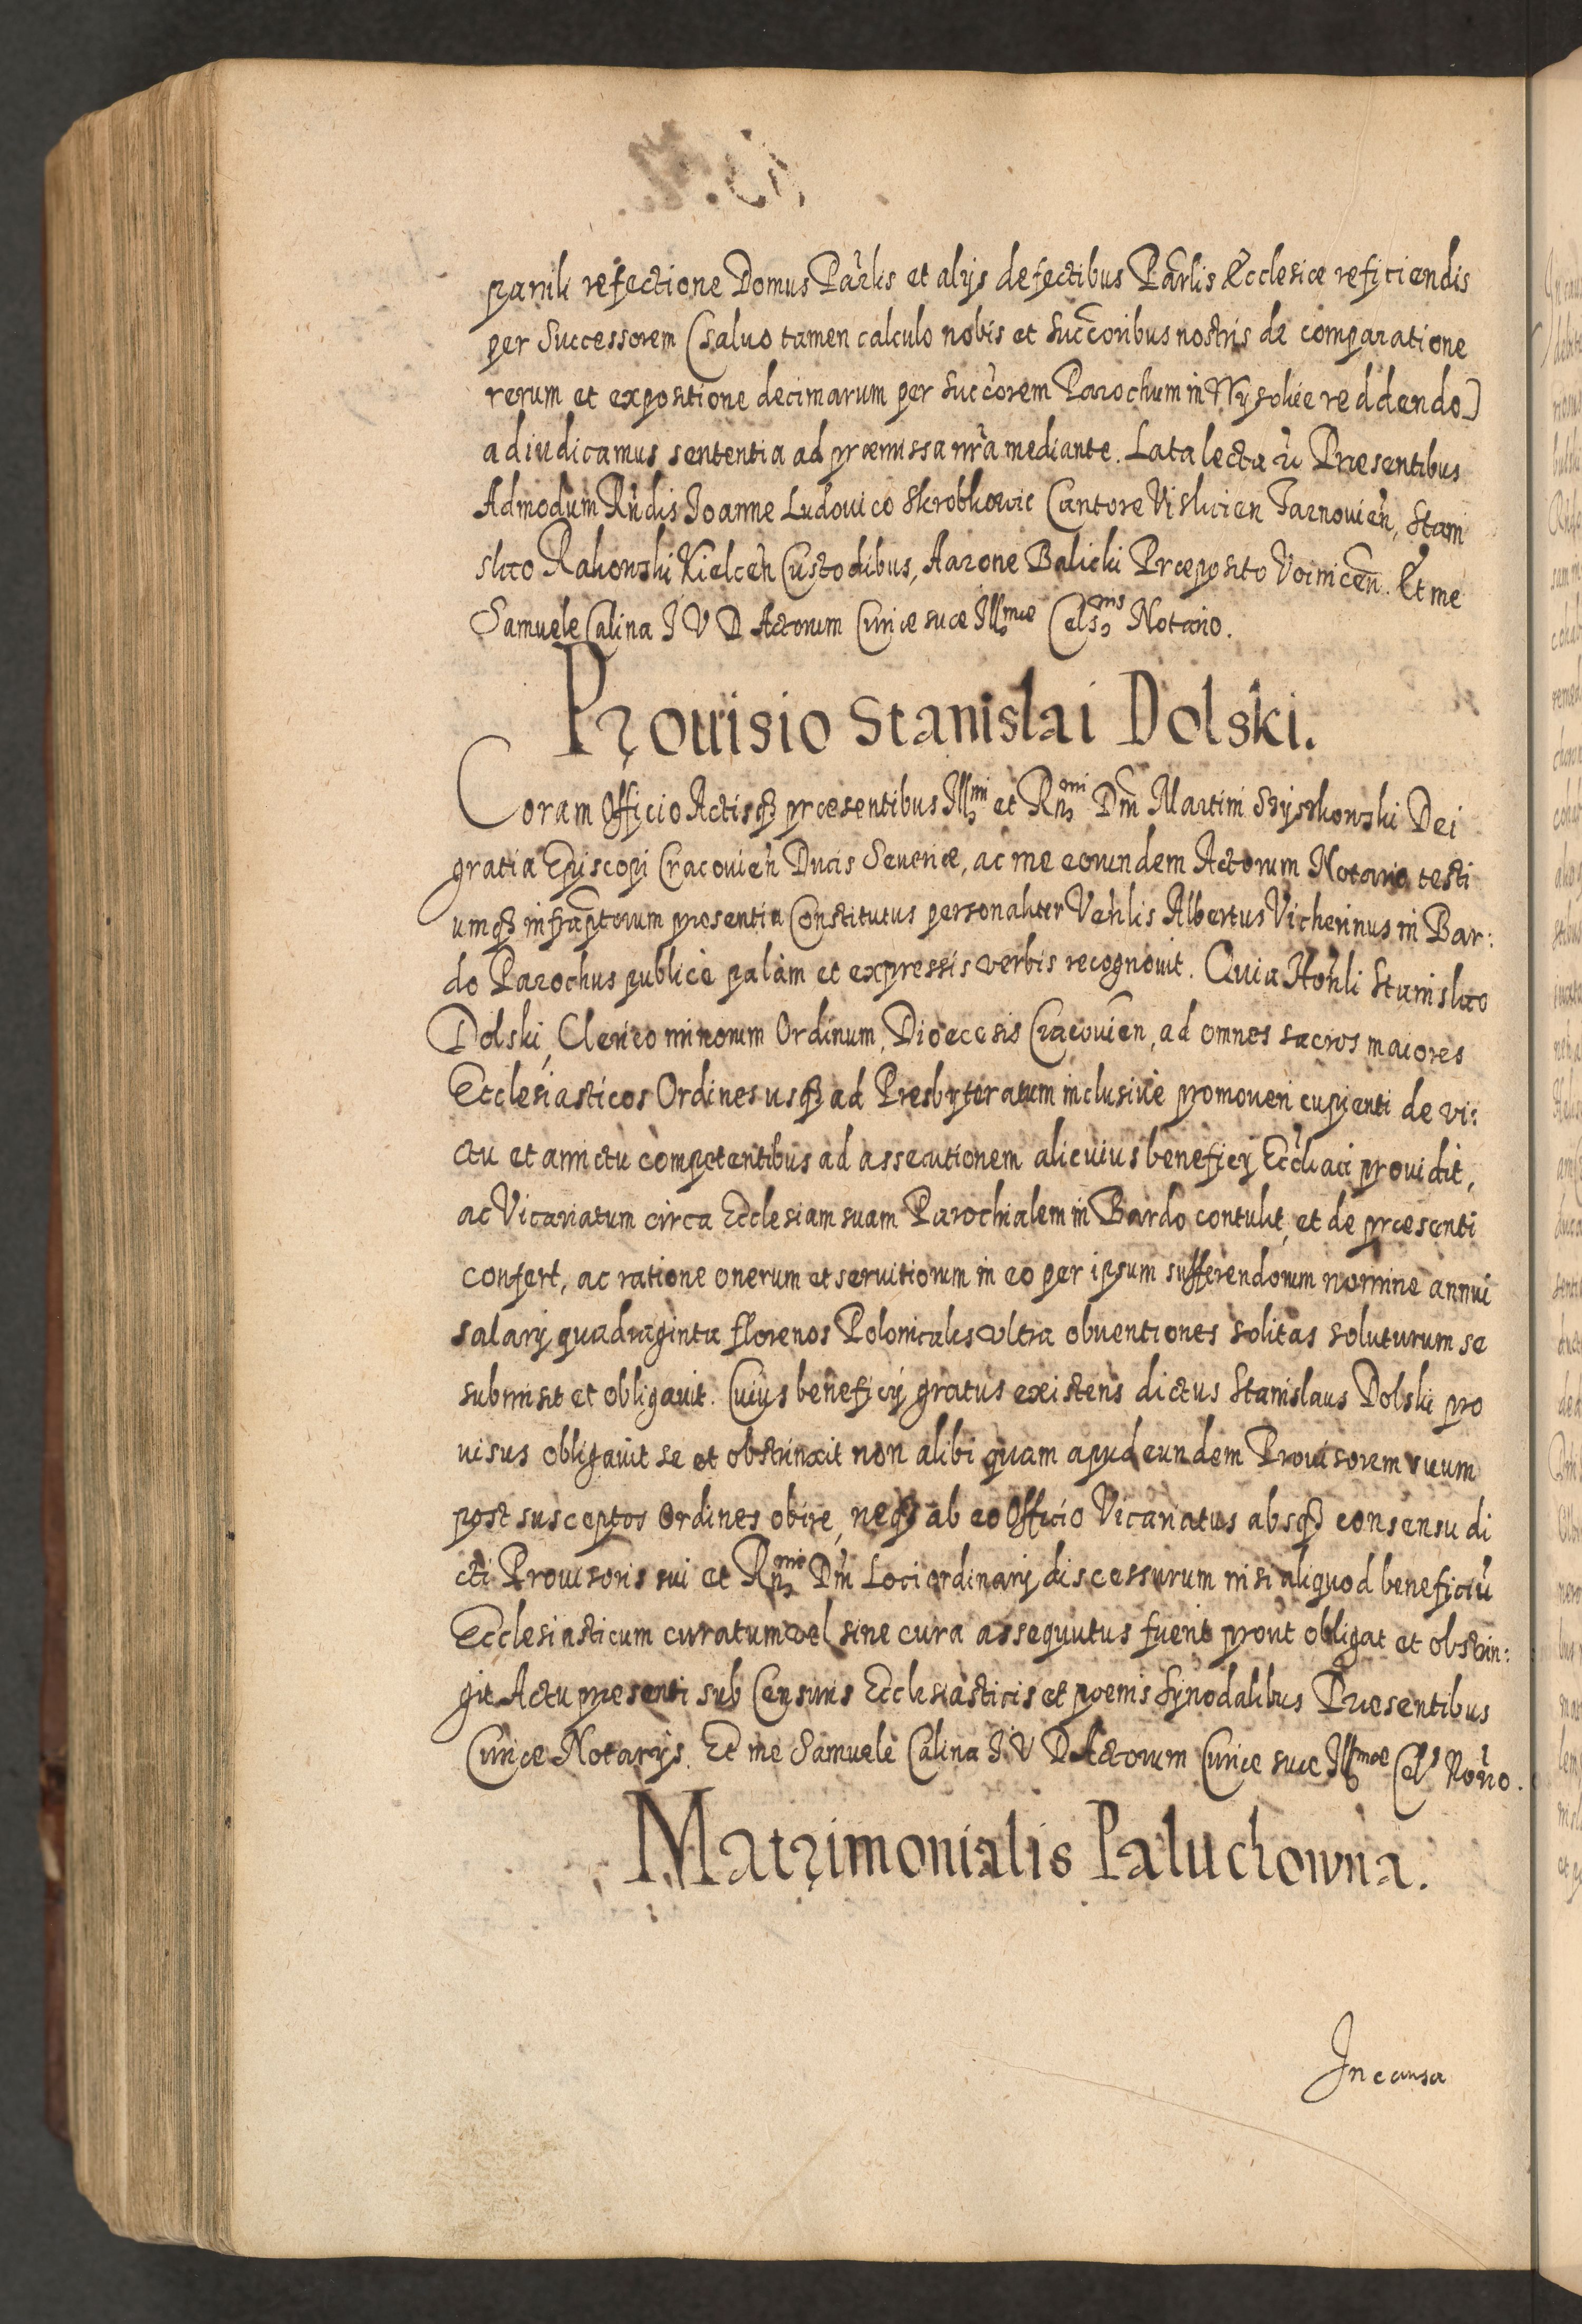 parrili refectione Domus Parlis et alijs defectibus Parlis Ecclesiæ reficiendis
per Successorem (saluo tamen calculo nobis et Succoribus nostris de comparatione
rerum et expositione decimarum per Succorem Parochum in Wysokie reddendo)
adiudicamus sententia ad præmissa nra mediante. Lata lecta Præsentibus
Admodum Rndis Joanne Ludouico Skrobkowic Cantore Vislicien Tarnouien, Stani
slao Rakowski Kielcen Custodibus, Aarone Balicki Præposito Voinicen. Et me
Samuele Calina I V D Actorum Curiæ suæ Illmæ Cels Notario.
Prouisio Stanislai Dolski.
Coram Officio Actisq præsentibus Illmi et Rnmi Dni Martini Szyszkowski Dei
gratia Episcopi Cracouien Ducis Seueriæ, ac me eorundem Actorum Notario testi
umq infraptorum presentia Constitutus personaliter Venlis Albertus Vicherinus in Bar:
do Parochus publice palam et expressis verbis recognouit. Quia Honli Stanislao
Dolski, Clerico minorum Ordinum, Dioecesis Cracouien, ad omnes sacros maiores
Ecclesiasticos Ordines usq ad Presbyteratum inclusiue promoueri cupienti de vi:
ctu et amictu competentibus ad assecutionem alicuius beneficij Ecclliaci prouidit,
ac Vicariatum circa Ecclesiam suam Parochialem in Bardo contulit, et de præsenti
confert, ac ratione onerum et seruitiorum in eo per ipsum sufferendorum nomine annui
salarij quadraginta florenos Polonicales vltra obuentiones solitas soluturum se
submisit et obligauit. Cuius beneficij gratus existens dictus Stanislaus Dolski pro
uisus obligauit se et obstrinxit non alibi quam apud eundem Prouisorem suum
post susceptos Ordines obire, neq ab eo Officio Vicariatus absq consensu di
cti Prouisoris sui et Rnmi Dni Loci ordinarij discessurum nisi aliquod beneficiu
Ecclesiasticum curatum vel sine cura assequutus fuerit prout obligat et obstrin:
git Actu presenti sub Censuris Ecclesiasticis et poenis synodalibus Præsentibus
Curiæ Notarijs. Et me Samuele Calina I V D Actorum Curiæ suæ Illmæ Cels Norio.
Matrimonialis Paluchowna.
In causa